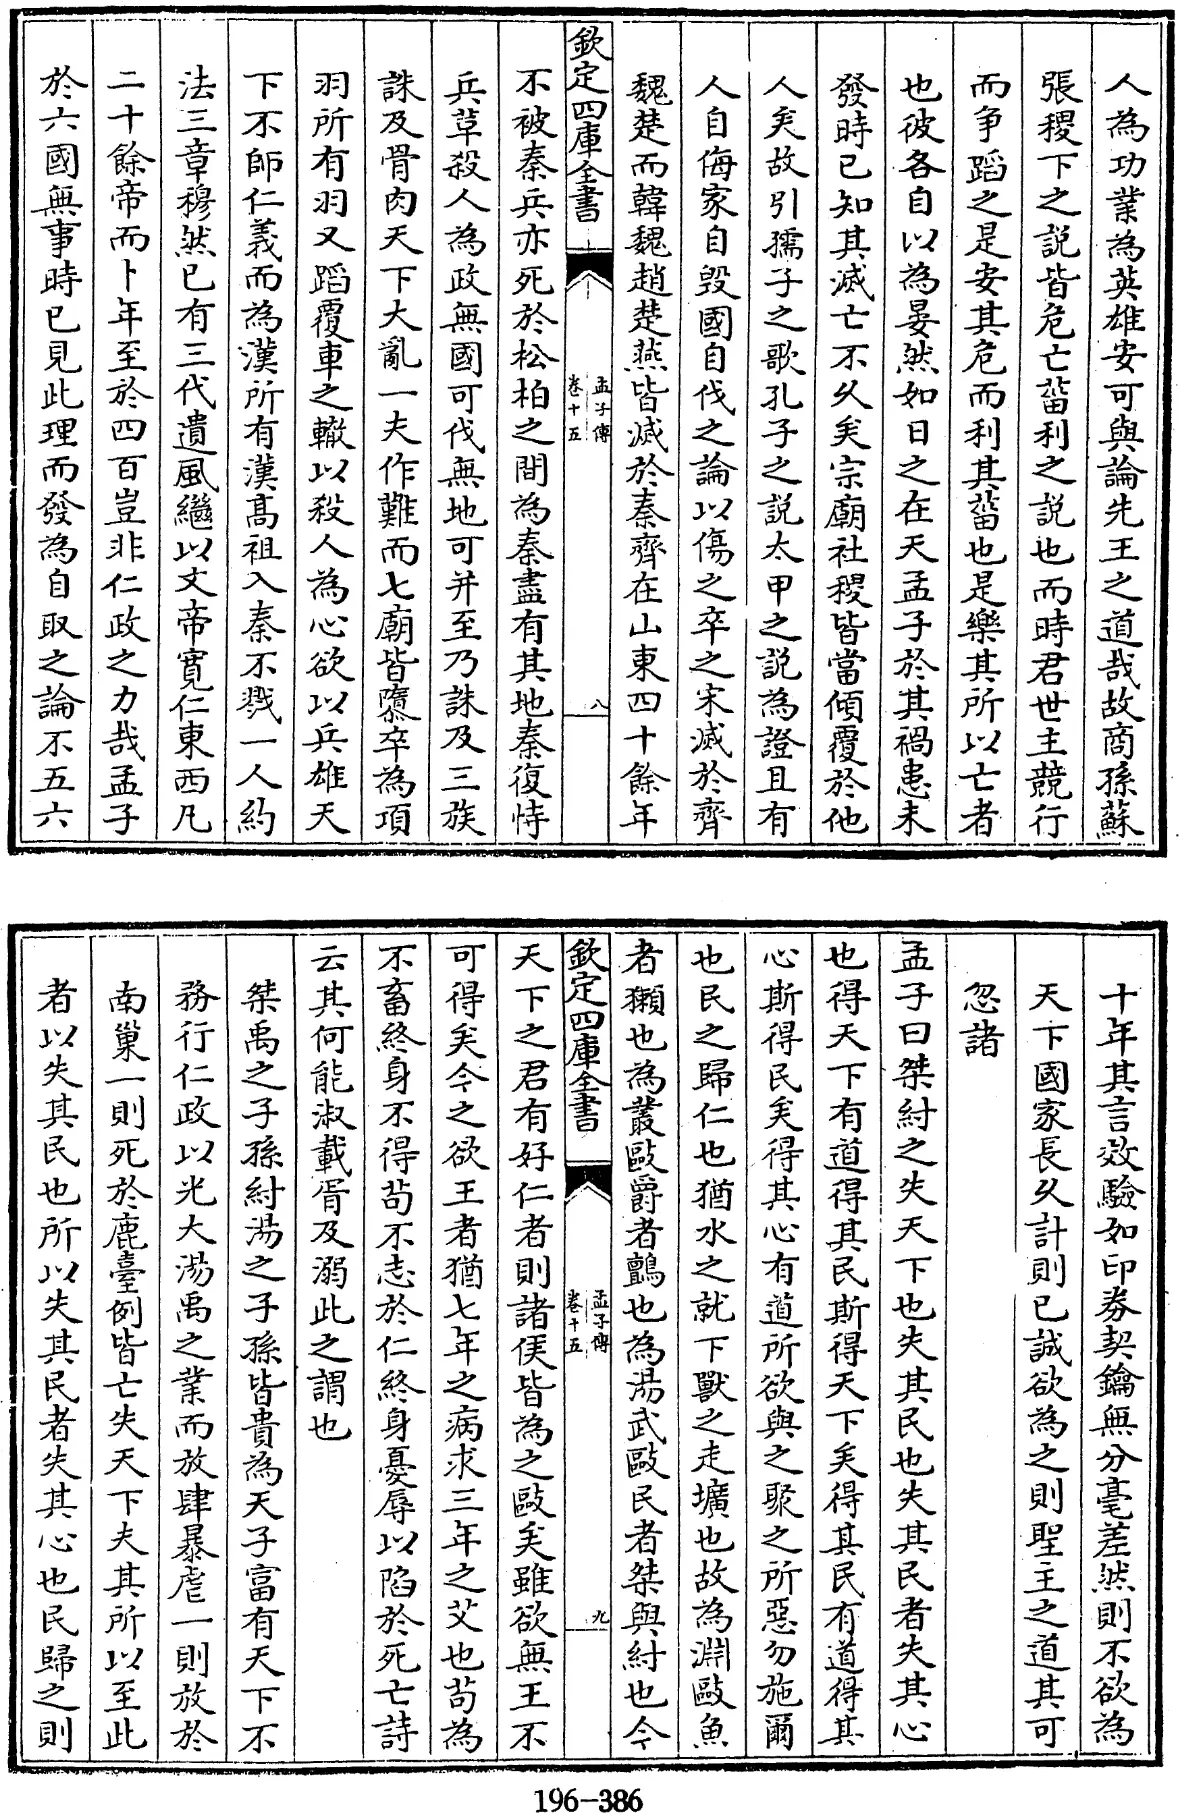 人為功業為英雄安可與論先王之道哉故商孫蘇
張稷下之説皆危亡菑利之説也而時君世主競行
而争蹈之是安其危而利其菑也是樂其所以亡者
也彼各自以為晏然如日之在天孟子於其禍患未
發時已知其滅亡不久矣宗廟社稷皆當傾覆於他
人矣故引孺子之歌孔子之説太甲之説為證且有
人自侮家自毁國自伐之論以傷之卒之宋滅於齊
魏楚而韓魏趙楚燕皆滅於秦齊在山東四十餘年
欽定四庫全書
孟子傳
卷十五
八
不被秦兵亦死於松柏之間為秦盡有其地秦復恃
兵草殺人為政無國可伐無地可并至乃誅及三族
誅及骨肉天下大亂一夫作難而七廟皆隳卒為項
羽所有羽又蹈覆車之轍以殺人為心欲以兵雄天
下不師仁義而為漢所有漢髙祖入秦不戮一人約
法三章穆然已有三代遺風繼以文帝寛仁東西凡
二十餘帝而卜年至於四百豈非仁政之力哉孟子
於六國無事時已見此理而發為自取之論不五六
十年其言效驗如印劵契鑰無分毫差然則不欲為
天下國家長久計則已誠欲為之則聖主之道其可
忽諸
孟子曰桀紂之失天下也失其民也失其民者失其心
也得天下有道得其民斯得天下矣得其民有道得其
心斯得民矣得其心有道所欲與之聚之所惡勿施爾
也民之歸仁也猶水之就下獸之走壙也故為淵敺魚
者獺也為叢敺爵者鸇也為湯武敺民者桀與紂也今
欽定四庫全書
孟子傳
卷十五
九
天下之君有好仁者則諸侯皆為之敺矣雖欲無王不
可得矣今之欲王者猶七年之病求三年之艾也茍為
不畜終身不得茍不志於仁終身憂辱以陷於死亡詩
云其何能淑載胥及溺此之謂也
桀禹之子孫紂湯之子孫皆貴為天子富有天下不
務行仁政以光大湯禹之業而放肆暴虐一則放於
南巢一則死於鹿臺例皆亡失天下夫其所以至此
者以失其民也所以失其民者失其心也民歸之則
196-386